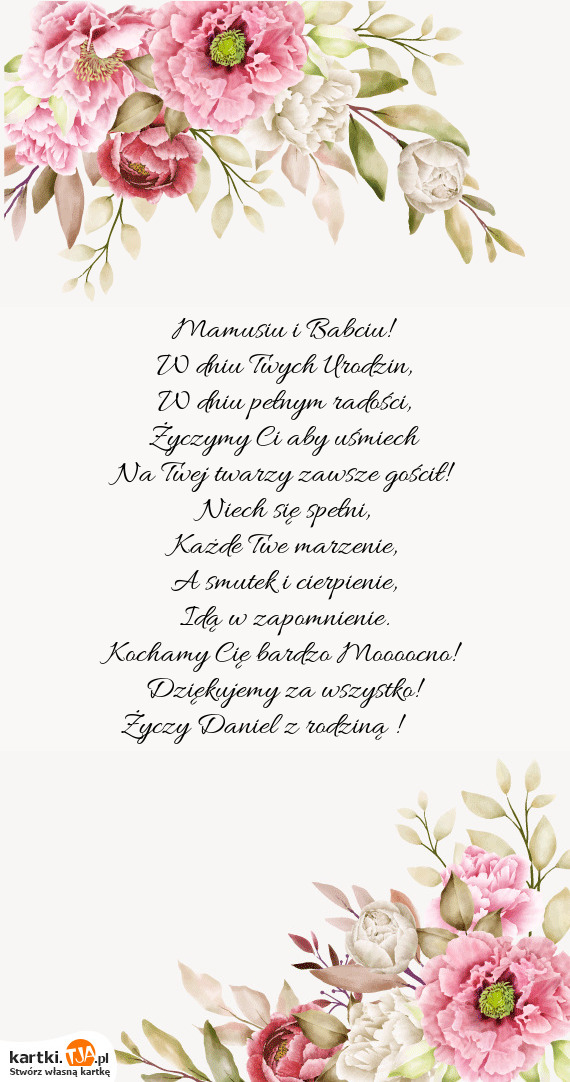 Mamusiu i Babciu!
W dniu Twych Urodzin,
W dniu pełnym radości,
Życzymy Ci aby uśmiech
Na Twej twarzy zawsze gościł!
Niech się spełni,
Każde Twe marzenie,
A smutek i cierpienie,
Idą w zapomnienie.
Kochamy Cię bardzo Moooocno!
Dziękujemy za wszystko!
Życzy Daniel z rodziną !
kartki.TJA.pl
Stwórz własną kartkę